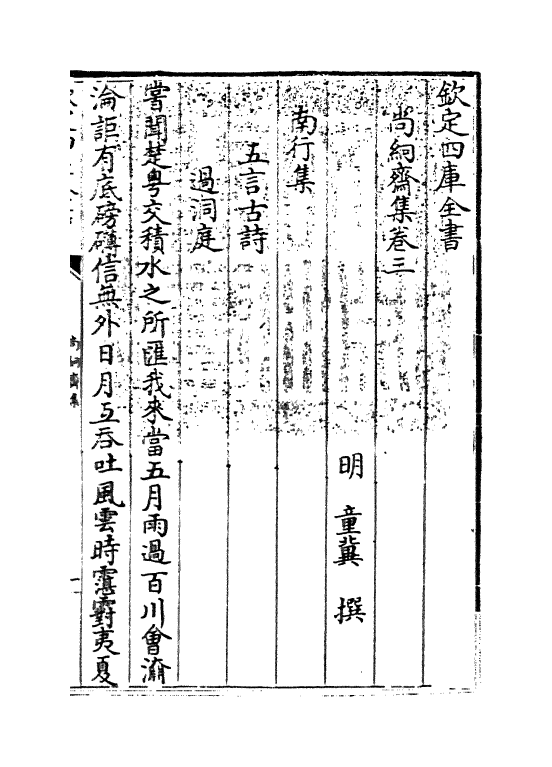 欽定四庫全書
尚絅齋集卷三
明 童冀 撰
南行集
五言古詩
過洞庭
嘗聞楚粤交積水之所匯我來當五月雨過百川會瀹
淪詎有底磅礴信無外日月互吞吐風雲時霮䨴夷夏